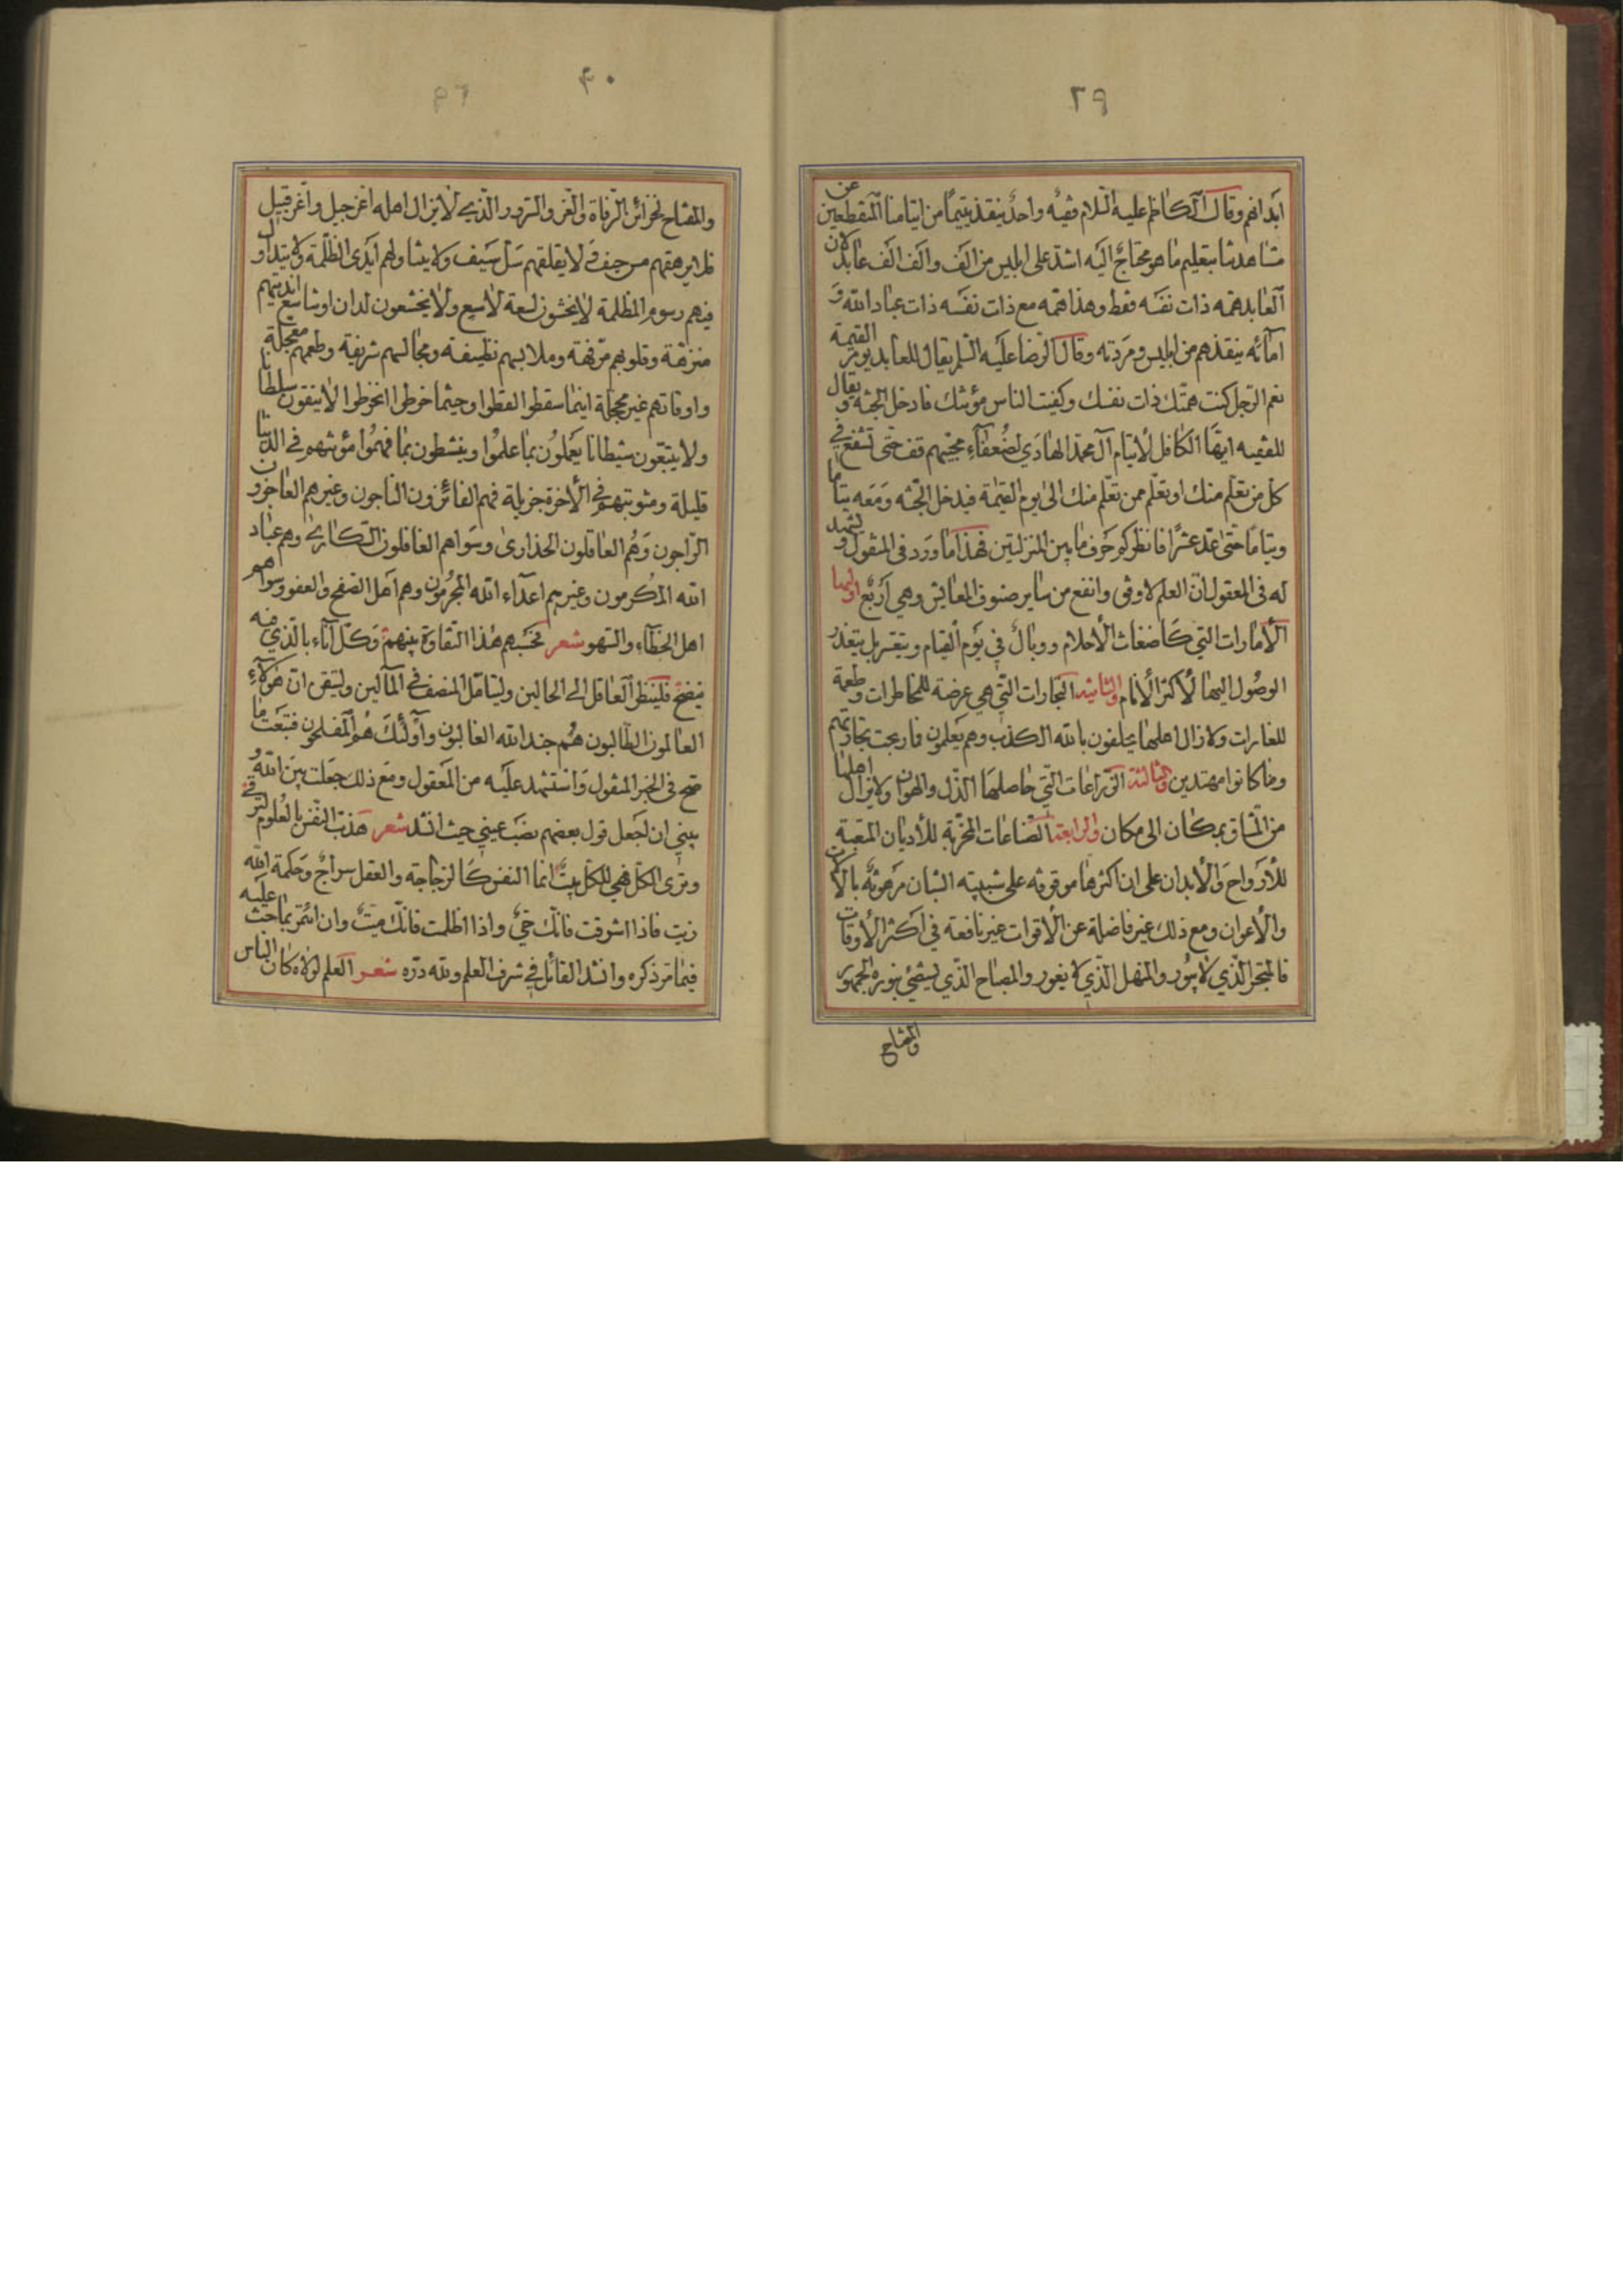 ٢٩
ابدانهم وقال الكاظم عليه السلام فقيه واحد ينقذ يتيمًا من ايتامنا المنقطعين عن
مشاهدتنا بتعليم ما هو محتاج اليه اشد على ابليس من الف والف الف عابد لان
العابد همه ذات نفسه فقط وهذا همه مع ذات نفسه ذات عباد الله و
امائه ينقذهم من ابليس ومردته وقال الرضا عليه السلم يقال للعابد يوم القيمة
نعم الرجل كنت همتك ذات نفسك وكفيت الناس مؤنتك فادخل الجنة و يقال
للفقيه ايها الكافل لأيتام آل محمد الهادي لضعفاء محبيهم قف حتى تشفع في
كل من تعلم منك او تعلم ممن تعلم منك الى يوم القيمة فيدخل الجنة ومعه يتاما
ويتامًا حتى عد عشرًا فانظر كم حرف ما بين المنزلتين فهذا ما ورد في المنقول و لنشهد
له في المعقول ان العلم لاوفى وانفع من ساير صنوف المعايش وهي اربع اوليها
الأمارات التي كأضغاث الأحلام ووبال في يوم القيام ويتعسر بل يتعذر
الوصول اليها لأكثر الأنام والثانية التجارات التي هي عرضة للمخاطرات وطعمة
للغارات ولا زال اهلها يحلفون بالله الكذب وهم يعلمون فما ربحت تجارتهم
وما كانوا مهتدين والثالثة الزراعات التي حاصلها الذل والهوان ولا يزال اهلها
من المشاق بمكان الى مكان والرابعة الصناعات المخربة للأديان المتعبة
للأرواح والأبدان على ان اكثرها موقوفة على شبيبة الشبان مرهونة بالآلات
والأعوان ومع ذلك غير فاضلة عن الأقوات غير نافعة في اكثر الأوقات
فالمتجر الذي لا يبور والمنهل الذي لا يغور والمصباح الذي يستضيء بنوره الجمهور
والمفتاح
٤٠
والمفتاح لخزائن الرفاة والعز والسرور الذي لا يزال اهله اعز جيل واعز قبيل
فلم يرهقهم مرجف لا يقلقهم سل سيف ولا يتناولهم ايدي الظلمة ولا يتداول
فيهم رسوم المظلمة لا يخشون لسعة لاسع ولا يخشعون لدان او شاسع انديتهم
منزهة وقلوبهم مرفهة وملابسهم نظيفة ومجالسهم شريفة وطعمهم معجلة
واوقاتهم غير مجملة اينما سقطوا لقطوا وحيثما خرطوا انخرطوا لا يتقون سلطانا
ولا يتبعون شيطانا يعملون بما علموا وينشطون بما فهموا مؤنتهم في الدنيا
قليلة ومثوبتهم في الأخرة جزيلة فهم الفائزون الناجون وغيرهم العاجزون
الراجون وهم العاقلون الحذارى وسواهم الغافلون السكارى وهم عباد
الله المكرمون وغيرهم اعداء الله المجرمون وهم اهل الصفح والعفو وسواهم
اهل الخطاء والسهو شعر فحسبهم هذا التفاوت بينهم وكل اناء بالذي فيه
ينضح فلينظر العاقل الى الحالين وليتامل المنصف في المآلين وليتيقن ان هؤلاء
العالمون الطالبون هم جند الله الغالبون واولئك هم المفلحون فتبعت ما
صح في الخبر المنقول واستشهد عليه من المعقول ومع ذلك جعلت بين الله و
بيني ان اجعل قول بعضهم نصب عيني حيث انشد شعر هذب النفس بالعلوم لترقى
وترى الكل فهي للكل بيت انما النفس كالزجاجة والعقل سراج وحكمة الله
زيت فاذا اشرقت فانك حي واذا اظلمت فانك ميت وان ائتمر بما حث عليه
فيما مر ذكره وانشد القائل في شرف العلم ولله دره شعر العلم لولاه كان الناس